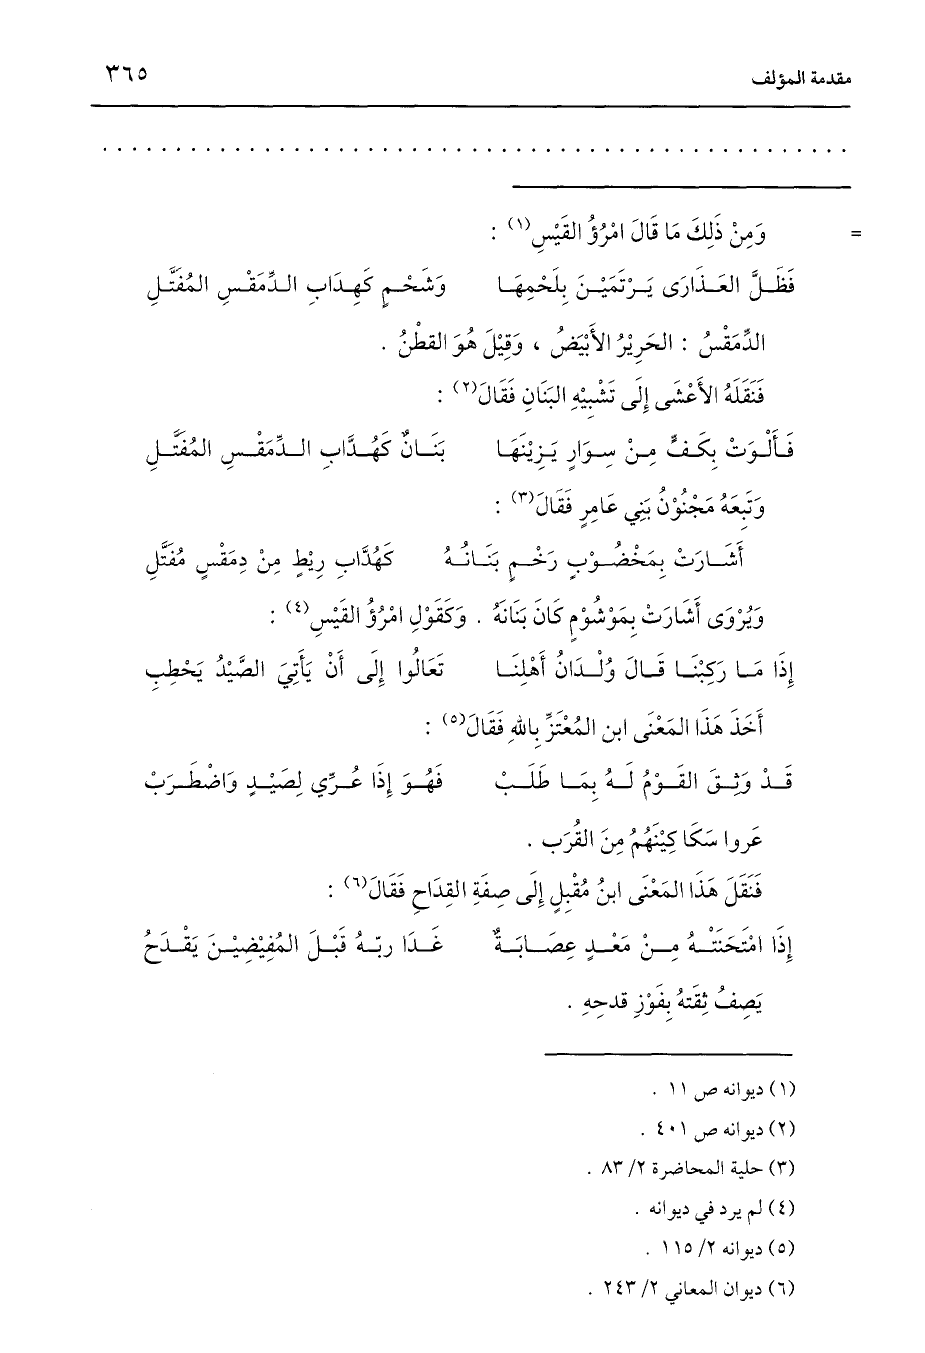 مقدمة المؤلف ٣٦٥
. . . . . . . . . . . . . . . . . . . . . . . . . . . . . . . . . . . . . . . . . . . . . . . . . . .
= وَمِنْ ذَلِكَ مَا قَالَ امْرُؤُ القَيْسِ(١) :
فَظَلَّ العَذَارَى يَرْتَمَيْنَ بِلَحْمِهَا وَشَحْمٍ كَهِدَابِ الدِّمَقْسِ المُفَتَّلِ
الدِّمَقْسُ : الحَرِيْرُ الأَبْيَضُ ، وَقِيْلَ هُوَ القطْنُ .
فَنَقَلَهُ الأَعْشَى إِلَى تَشْبِيْهِ البَنَانِ فَقَالَ(٢) :
فَأَلْوَتْ بِكَفٍّ مِنْ سِوَارٍ يَزِيْنَهَا بَنَانٌ كَهُدَّابِ الدِّمَقْسِ المُفَتَّلِ
وَتَبِعَهُ مَجْنُوْنُ بَنِي عَامِرٍ فَقَالَ(٣) :
أَشَارَتْ بِمَخْضُوْبٍ رَخْمٍ بَنَانُهُ كَهُدَّابِ رِيْطٍ مِنْ دِمَقْسٍ مُفَتَّلِ
وَيُرْوَى أَشَارَتْ بِمَوْشُوْمٍ كَانَ بَنَانَهُ . وَكَقَوْلِ امْرُؤُ القَيْسِ(٤) :
إِذَا مَا رَكِبْنَا قَالَ وُلْدَانُ أَهْلِنَا تَعَالُوا إِلَى أَنْ يَأَتِيَ الصَّيْدُ يَحْطِبِ
أَخَذَ هَذَا المَعْنَى ابن المُعْتَزِّ بِاللهِ فَقَالَ(٥) :
قَدْ وَثِقَ القَوْمُ لَهُ بِمَا طَلَبْ فَهُوَ إِذَا عُرِّي لِصَيْدٍ وَاضْطَرَبْ
عَروا سَكَاكِيْنَهُمُ مِنَ القُرَبِ .
فَنَقَلَ هَذَا المَعْنَى ابنُ مُقْبِلٍ إِلَى صِفَةِ القِدَاحِ فَقَالَ(٦) :
إِذَا امْتَحَنَتْهُ مِنْ مَعْدٍ عِصَابَةٌ غَدَا ربّهُ قَبْلَ المُفِيْضِيْنَ يَقْدَحُ
يَصِفُ ثِقَتهُ بِفَوْزِ قدحِهِ .
(١) ديوانه ص ١١ .
(٢) ديوانه ص ٤٠١ .
(٣) حلية المحاضرة ٢/ ٨٣ .
(٤) لم يرد في ديوانه .
(٥) ديوانه ٢/ ١١٥ .
(٦) ديوان المعاني ٢/ ٢٤٣ .